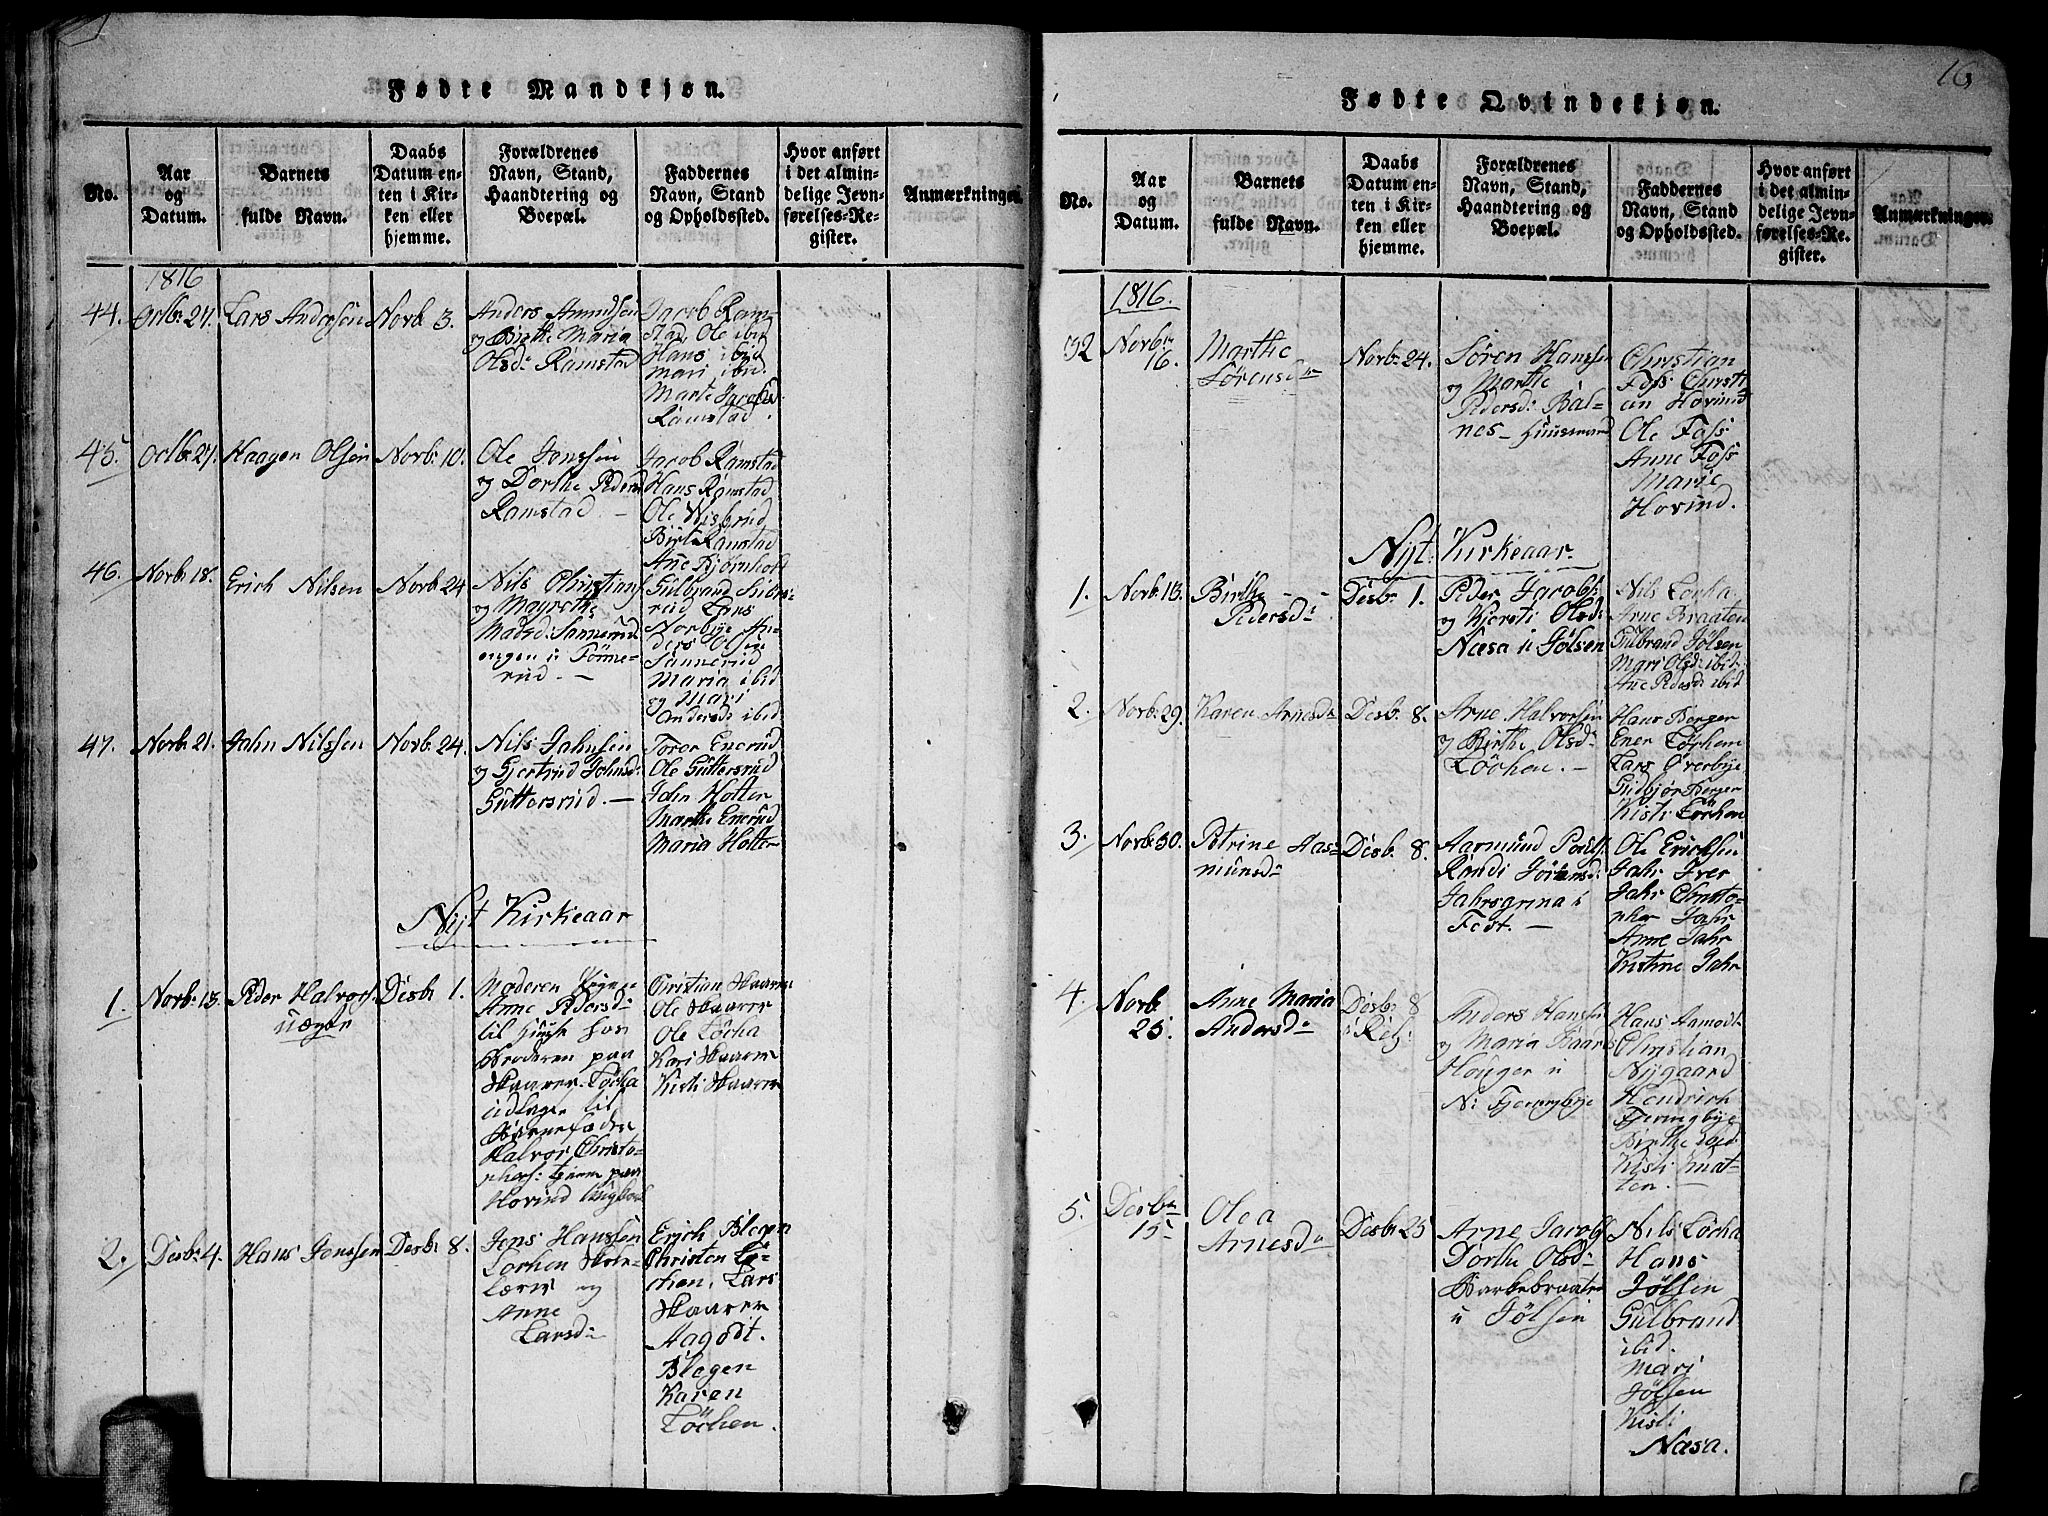 Fødte Mandkjøn.
No.
Aar
og
Datum.
Barnets
fulde Navn.
Daabs
Datum en-
ten i Kir-
ken eller
hjemme.
Forældrenes
Navn, Stand,
Haandtering og
Boepæl.
Faddernes
Navn, Stand
og Opholdssted.
Hvor anført
i det almin-
delige Jevn-
førelses-Re-
gister.
Anmærkninger.
1816
44.
Octb: 27.
Lars Andersen
Novb: 3.
Anders Amundsen
og Birthe Maria
Olsd: Ramstad
Jacob Ram-
stad, Ole ibid
Hans ibid
Mari ibid.
Marte Jacobsd
Ramstad.
45.
Octb: 27.
Haagen Olsen
Novb: 10.
Ole Jonssen
og Dorthe Peders
Ramstad. —
Jacob Ramstad
Hans Ramstad
Ole
Birte Ramstad
Ane Bjørnholt
46.
Novb: 18.
Erich Nilsen
Novb: 24
Nils Christians
og
Madsd:
engen u: Tønne-
rud. —
Gulbrand
rud Lars
Norbye An-
ders Olsen
Sannerud
Maria ibid
og Mari
Andersd: ibid
47.
Novb: 21.
Jahn Nilssen
Novb: 24.
Nils Jahnsen
og Gjertrud Johnsd:
Guttersrud. —
Toror Enerud
Ole Guttersrud
John Holter
Marthe Enerud
Maria Holter
Nyt Kirkeaar
1.
Novb: 13.
Peder Halvors:
uægte
Desb: 1.
Moderen Pigen
Anne Pedersd:
til Huuse hos
Broderen paa
Skaarer Løcha
udlagt til
Barnefader
Halvor Christo-
phers: tjener paa
Hovind
Christian Skaarer
Ole Skaarer
Ole Løcha
Kari Skaarer
Kisti Skaarer
2.
Desb: 4.
Hans Jonssen
Desb: 8.
Jens Hanssen
Løchen Skole-
lærer og
Anne
Larsd:
Erich Blegen
Christen Lö-
chen, Lars
Skaarer
Aagodt.
Blegen
Karen
Löchen.
16
Fødte Qvindekjøn.
No.
Aar
og
Datum.
Barnets
fulde Navn.
Daabs
Datum en-
ten i Kir-
ken eller
hjemme.
Forældrenes
Navn, Stand,
Haandtering og
Boepæl.
Faddernes
Navn, Stand
og Opholdssted.
Hvor anført
i det almin-
delige Jevn-
førelses-Re-
gister.
Anmærkninger.
1816.
Novbr:
16.
Marthe
Sörensd:
Novb: 24.
Sören Hanssen
og Marthe
Pedersd: Bal-
nes- Huusmand
Christian
Foss Christi-
an Hovind
Ole Foss
Anne Foss
Marie
Hovind.
Nyt: Kirkeaar.
1.
Novb: 13.
Birthe
Pedersd:
Desb: 1.
Peder Jacobs:
og Kjersti Olsd:
Næsa u: Jölsen
Nils Löcha
Arne Braaten
Gulbrand Jölsen
Mari Olsd: ibid:
Ane Pedersd: ibid
2.
Novb: 29.
Karen Arnesd:
Desb: 8.
Arne Halvorsen
og Birthe Olsd:
Löchen. —
Hans Bergen
Ener Löchen
Lars Overbye
Gudbjör Bergen
Kisti Löchen
3.
Novb: 30.
Petrine Aas-
munsd:
Desb: 8.
Aasmund Pouls:
Randi Jörensd:
Jahrsgrina i
Feet. —
Ole Erichsen
Jahr Iver
Jahr Christo-
pher Jahr
Anne Jahr
Kistine Jahr
4.
Novb:
25.
Anne Maria
Andersd:
Desb: 8
i Kelj:
Anders Hansen
og Maria Baards
Houger u
N: Fjeringbye
Hans Aamodt
Christian
Nygaard
Hendrich
Fjeringbye
Birthe ibid
Kisti
ten.
5.
Desbr:
15
Olea
Arnesd:
Desb: 25
Arne Jacobs:
Dorthe Olsd:
Barkebraaten
u Jölsen
Nils Löcha
Hans
Jölsen
Gulbrand
ibid.
Mari
Jölsen
Kisti
Næsa.